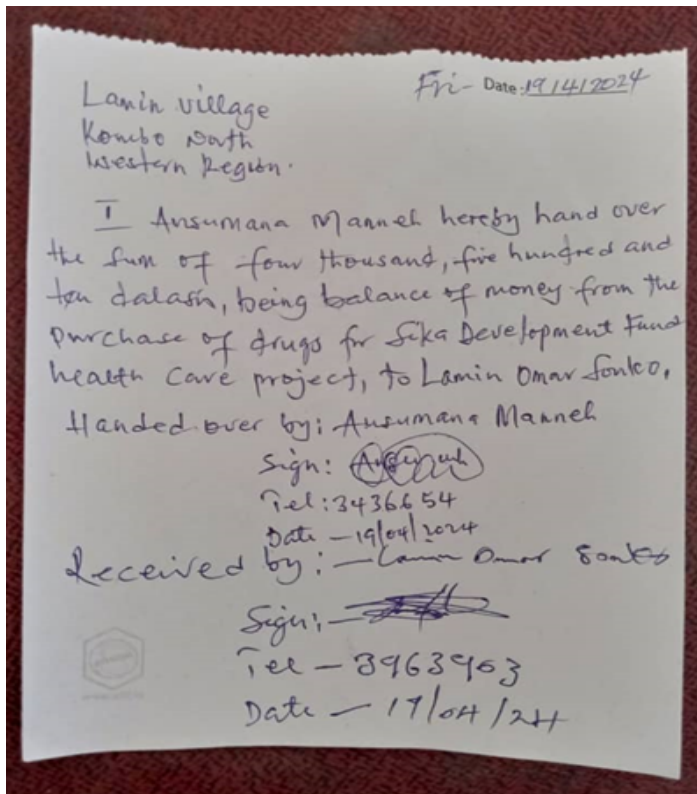 Fri- Date: 19/4/2024
Lamin village
Kombo North
Western Region.
I Ansumana Manneh hereby hand over
the sum of four thousand, five hundred and
ten dalasis, being balance of money from the
purchase of drugs for Sika Development Fund
health care project, to Lamin Omar Sonko,
Handed over by: Ansumana Manneh
Sign:
Tel: 3436654
Date - 19/04/2024
Received by: - Lamin Omar Sonko
Sign: -
Tel - 3963903
Date - 19/04/24